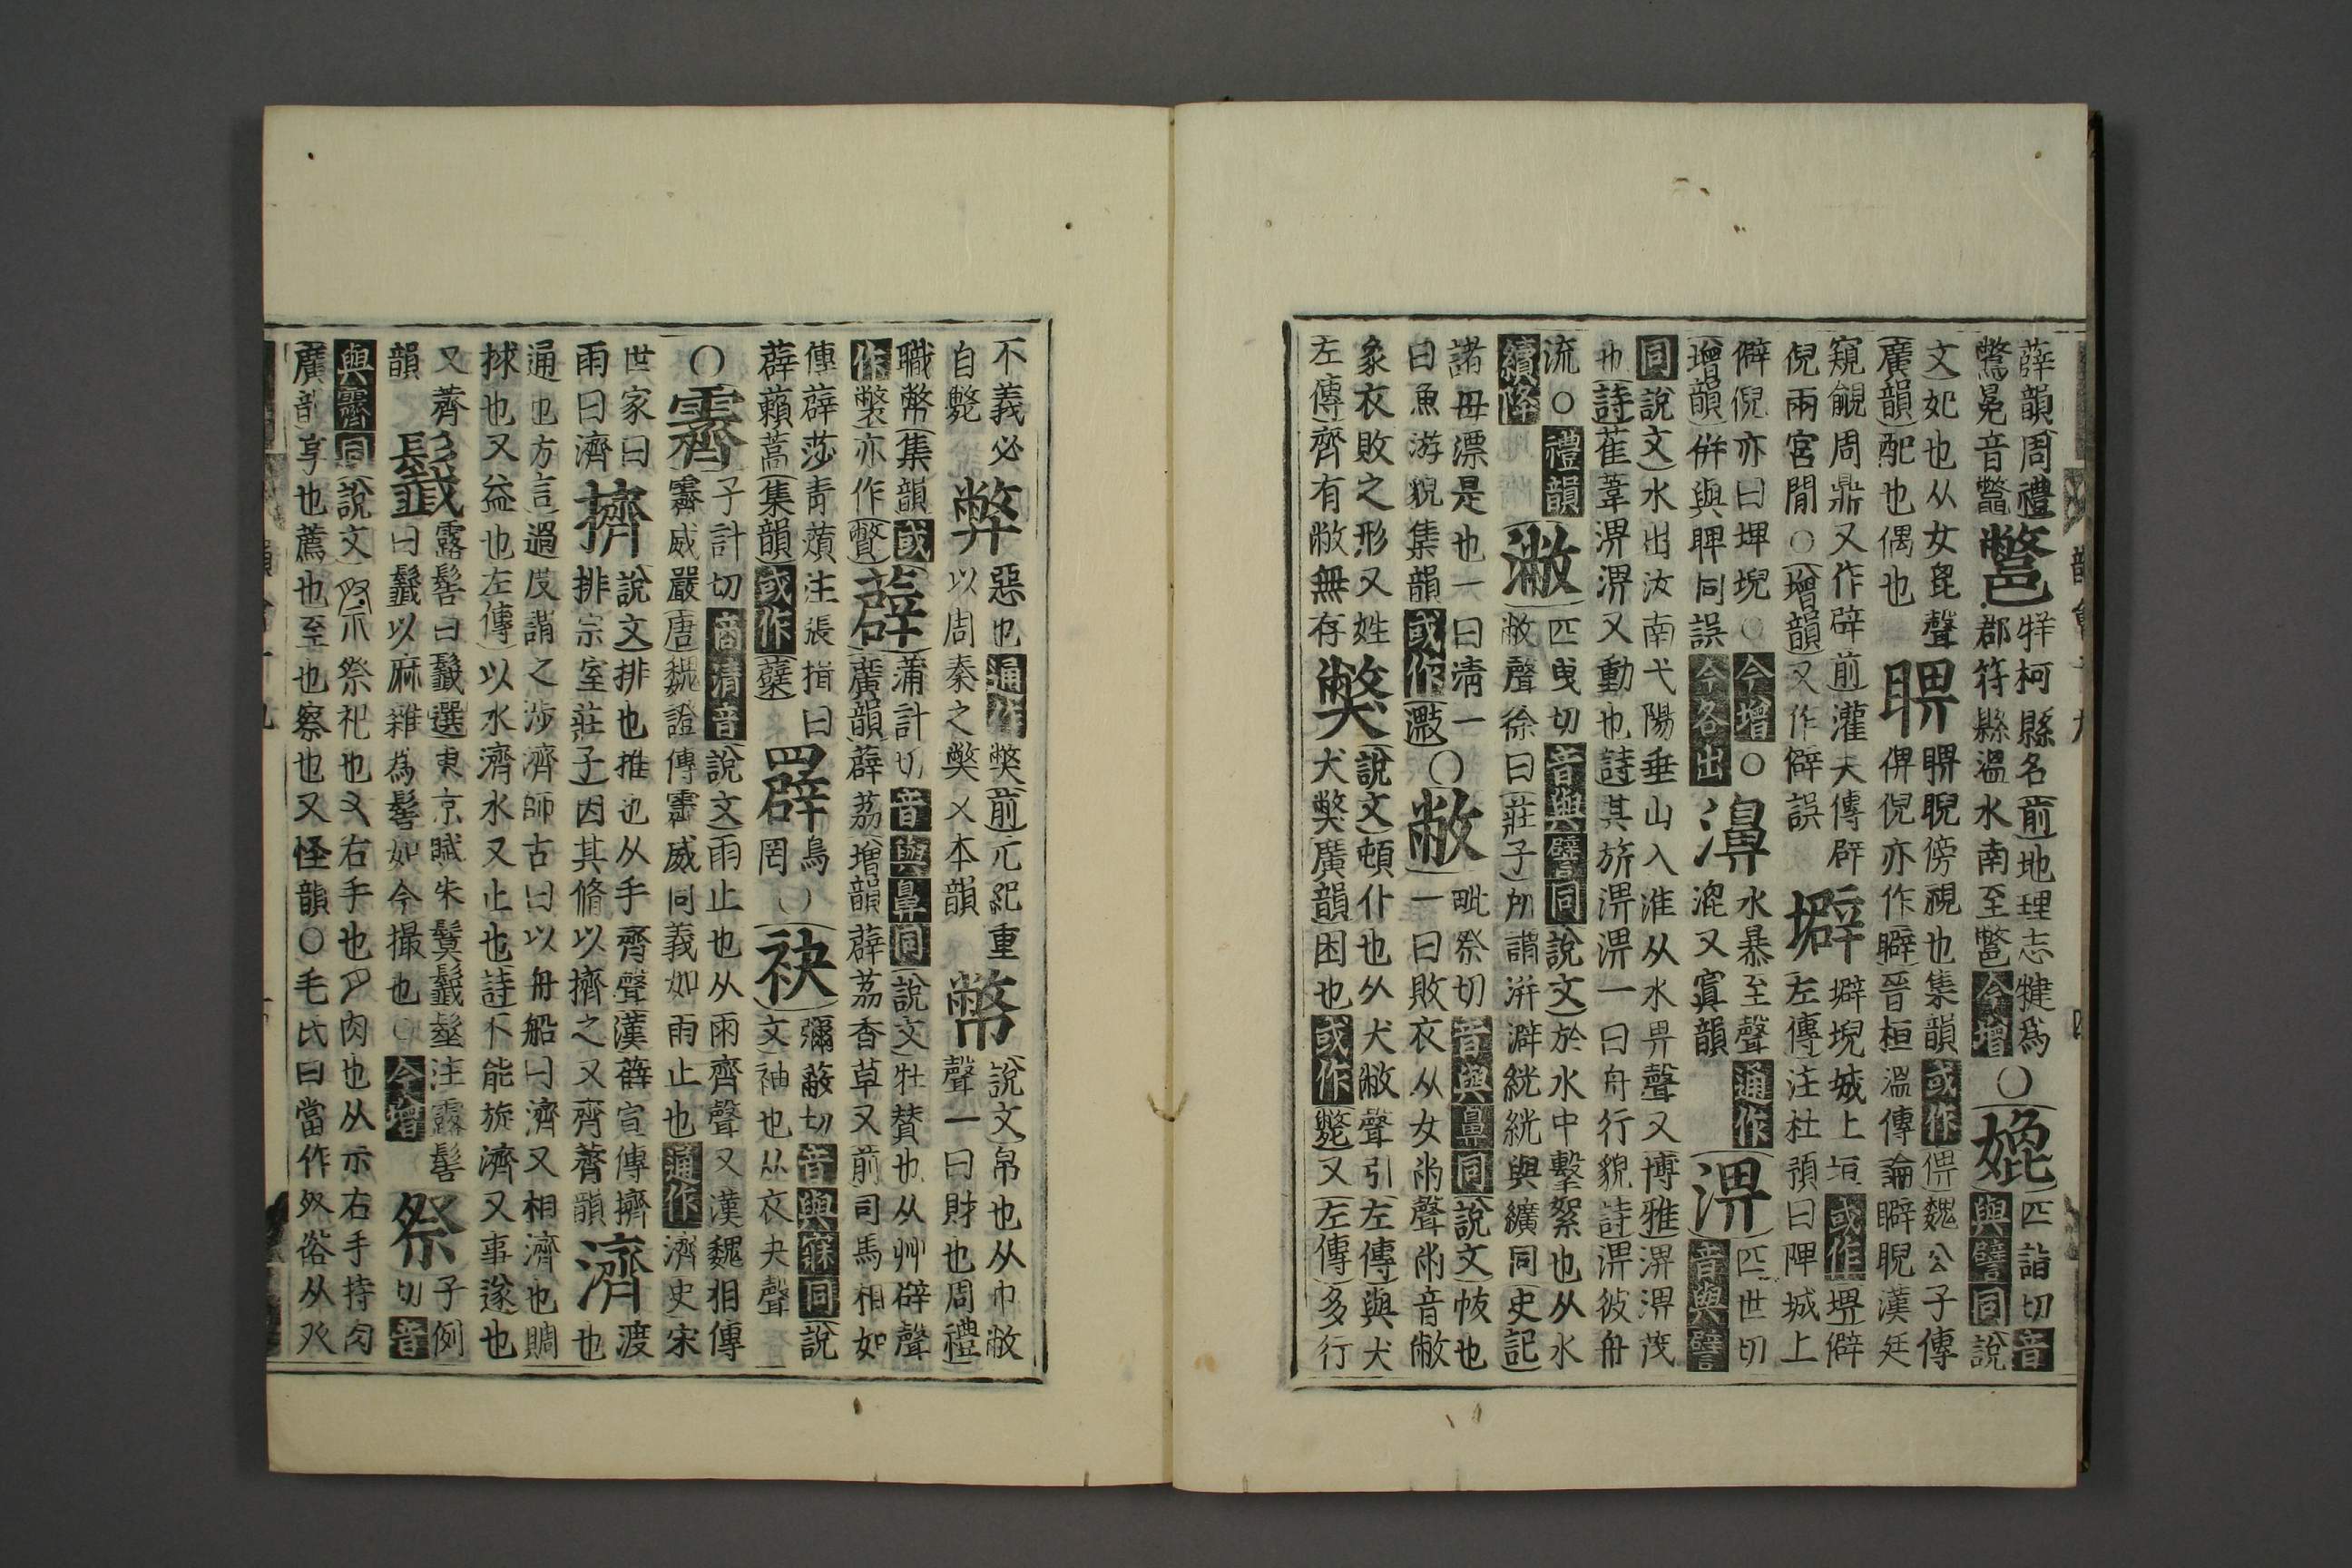 薛韻周禮
鷩冕音鼈
鄨
牂柯縣名前地理志犍爲
郡符縣溫水南至鄨今增
○
媲
匹詣切音
與譬同說
文妃也从女毘聲
廣韻配也偶也
睤
睤睨傍視也集韻或作俾魏公子傳
俾倪亦作睥晉桓溫傳論睥睨漢廷
窺覦周鼎又作辟前灌夫傳辟
倪兩宮間○增韻又作僻誤
壀
壀堄城上垣或作堺僻
左傳注杜預曰陴城上
僻倪亦曰埤堄○今增○
增韻併與睥同誤今各出
濞
水暴至聲通作
淠又寘韻
淠
匹世切
音與譬
同說文水出汝南弋陽垂山入淮从水畀聲又博雅淠淠茂
也詩萑葦淠淠又動也詩其旂淠淠一曰舟行貌詩淠彼舟
流○禮韻
續降
潎
匹曳切音與譬同說文於水中擊絮也从水
敝聲徐曰莊子所謂洴澼絖絖與纊同史記
諸母漂是也一曰淸一
曰魚游貌集韻或作澈
○
敝
毗祭切音與鼻同說文帗也
一曰敗衣从攴㡀聲㡀音敝
象衣敗之形又姓
左傳齊有敝無存
獘
說文頓仆也从犬敝聲引左傳與犬
犬獘廣韻困也或作斃又左傳多行
不義必
自斃
弊
惡也通作獘前元紀重
以周秦之獘又本韻
幣
說文帛也从巾敝
聲一曰財也周禮
職幣集韻或
作㡀亦作
薜
蒲計切音與鼻同說文牡贊也从艸辟聲
廣韻薜荔增韻薜荔香草又前司馬相如
傳薜莎靑薠注張揖曰
薜藾蒿集韻或作蘗
㘔
鳥
罔
○
袂
彌蔽切音與寐同說
文袖也从衣夬聲
○
霽
子計切商淸音說文雨止也从雨齊聲又漢魏相傳
霽威嚴唐魏證傳霽威同義如雨止也通作濟史宋
世家曰
雨曰濟
擠
說文排也推也从手齊聲漢薛宣傳擠
排宗室莊子因其脩以擠之又齊薺韻
濟
渡
也
通也方言過度謂之涉濟師古曰以舟船曰濟又相濟也賙
捄也又益也左傳以水濟水又止也詩不能旋濟又事遂也
又薺
韻
䰏
露髻曰䰏選東京賦朱鬕䰏髽注露髻
曰䰏以麻雜爲髻如今撮也○今增
祭
子例
切音
與霽同說文祭祀也又右手也月肉也从示右手持肉
廣韻享也薦也至也察也又怪韻○毛氏曰當作祭俗从癶